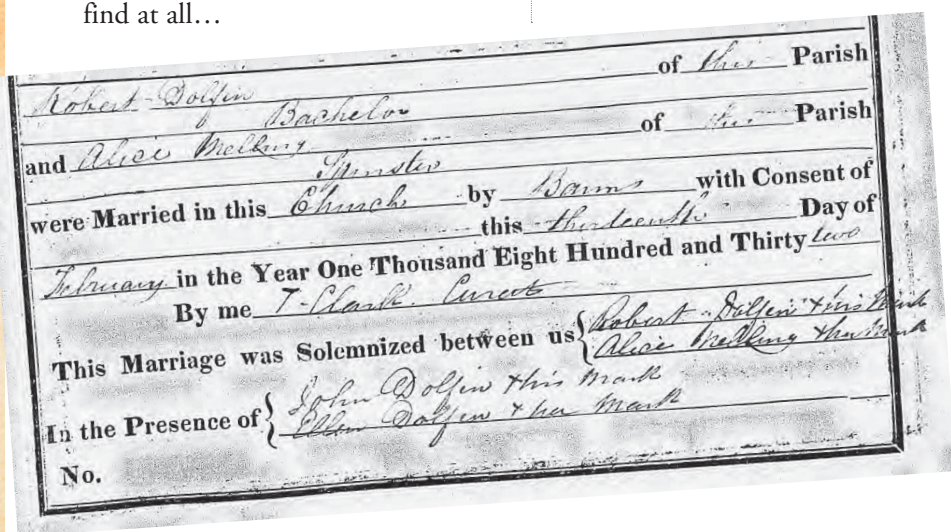 find at all…
Robert Dolfin of this Parish
Bachelor
and Alice Melling of this Parish
Spinster
were Married in this Church by Banns with Consent of
this thirteenth Day of
February in the Year One Thousand Eight Hundred and Thirty two
By me T. Clark Curate
This Marriage was Solemnized between us { Robert Dolfin + his Mark
Alice Melling + her Mark
In the Presence of { John Dolfin + his Mark
Ellen Dolfin + her Mark
No.